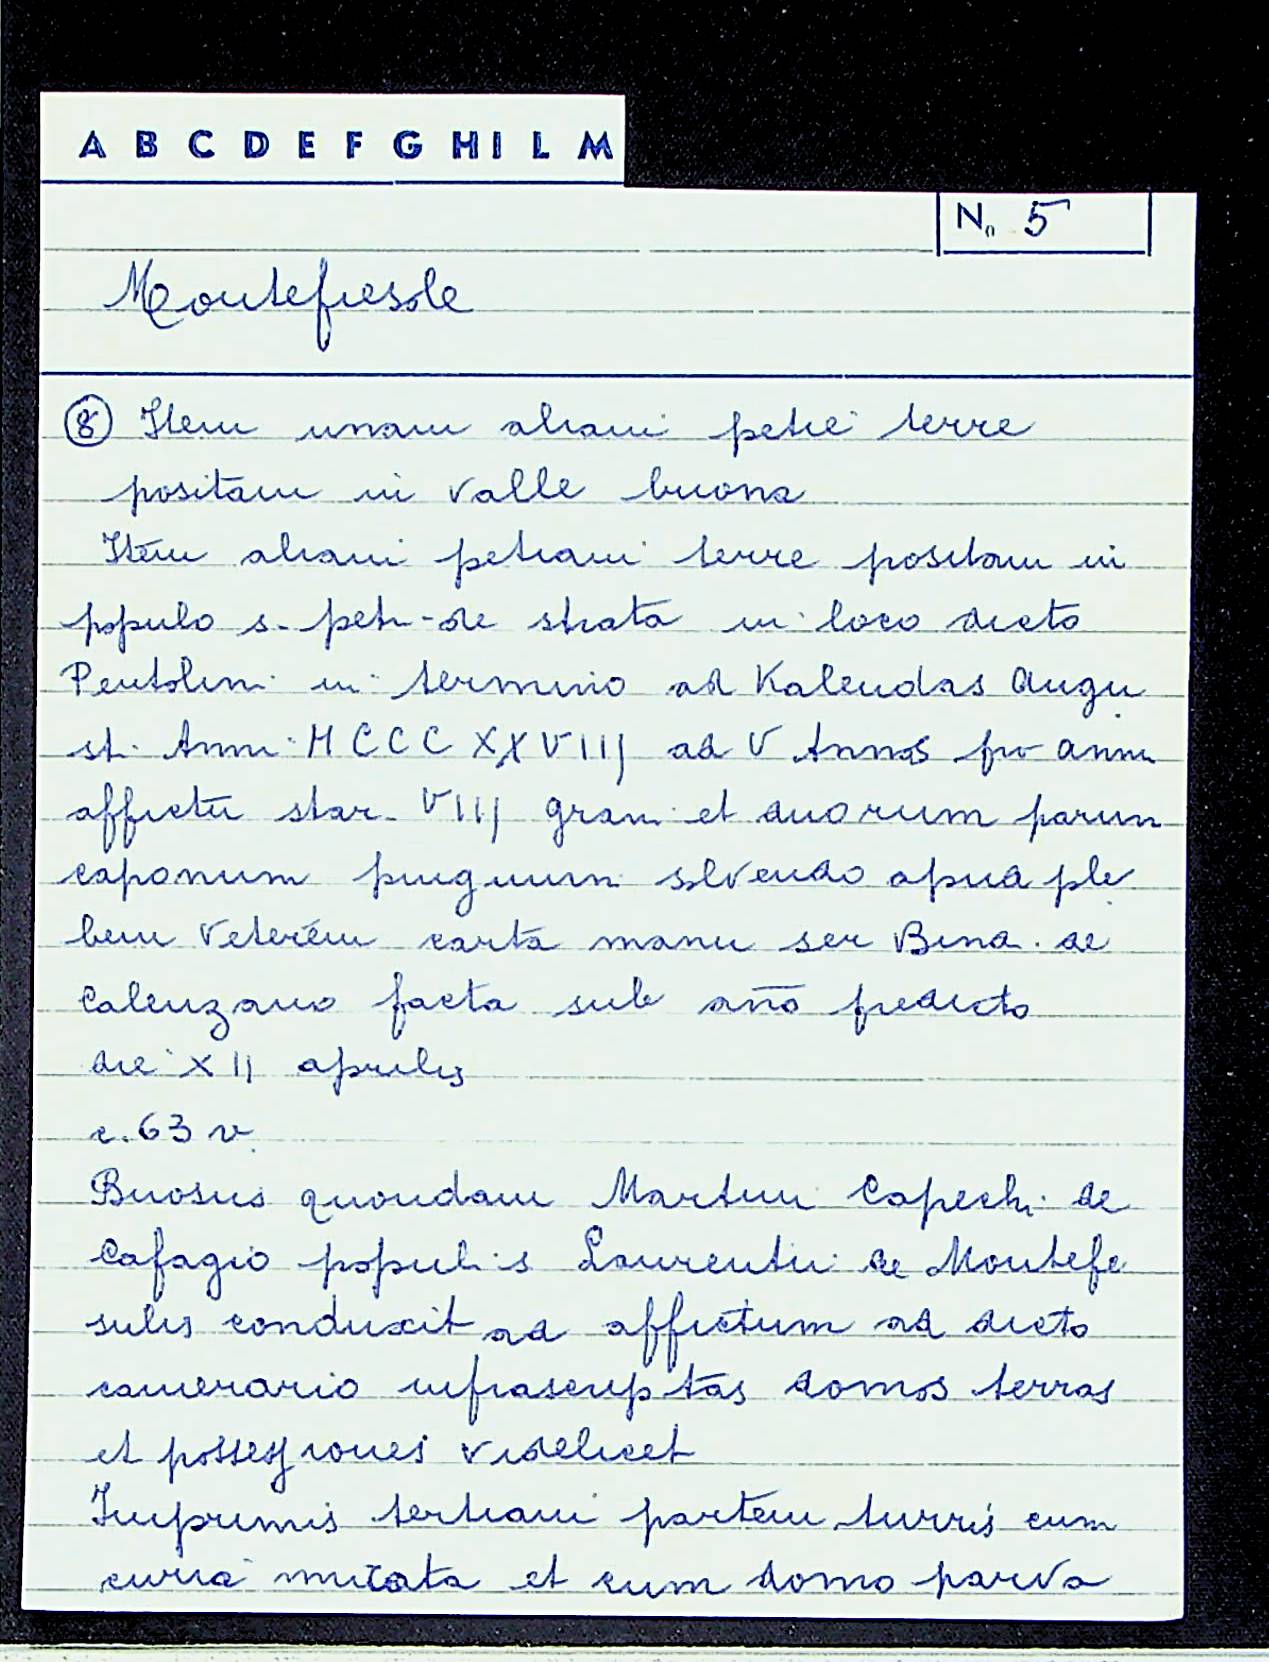 A B C D E F G H I L M
N. 5
Montefiesole
8 Item unam aliam petie terre
positam in valle buona
Item aliam petiam terre positam in
populo s. petri de strata in loco dicto
Pentolini in termino ad Kalendas Augu
sti Anni MCCCXXVIIJ ad V Annos pro annu
affictu star. VIIJ grani et duorum parium
caponum pinguium solvendo apud ple
bem veterem carta manu ser Bind. de
Calenzano facta sub año predicto
die XIJ aprilis
c. 63 v.
Buosus quondam Martini Capechi de
Cafagio populi s Laurentii de Montefe
sulis conduxit ad affictum ad dicto
camerario infrascriptas domos terras
et possessiones videlicet
Imprimis tertiam partem turris cum
curia murata et cum domo parva